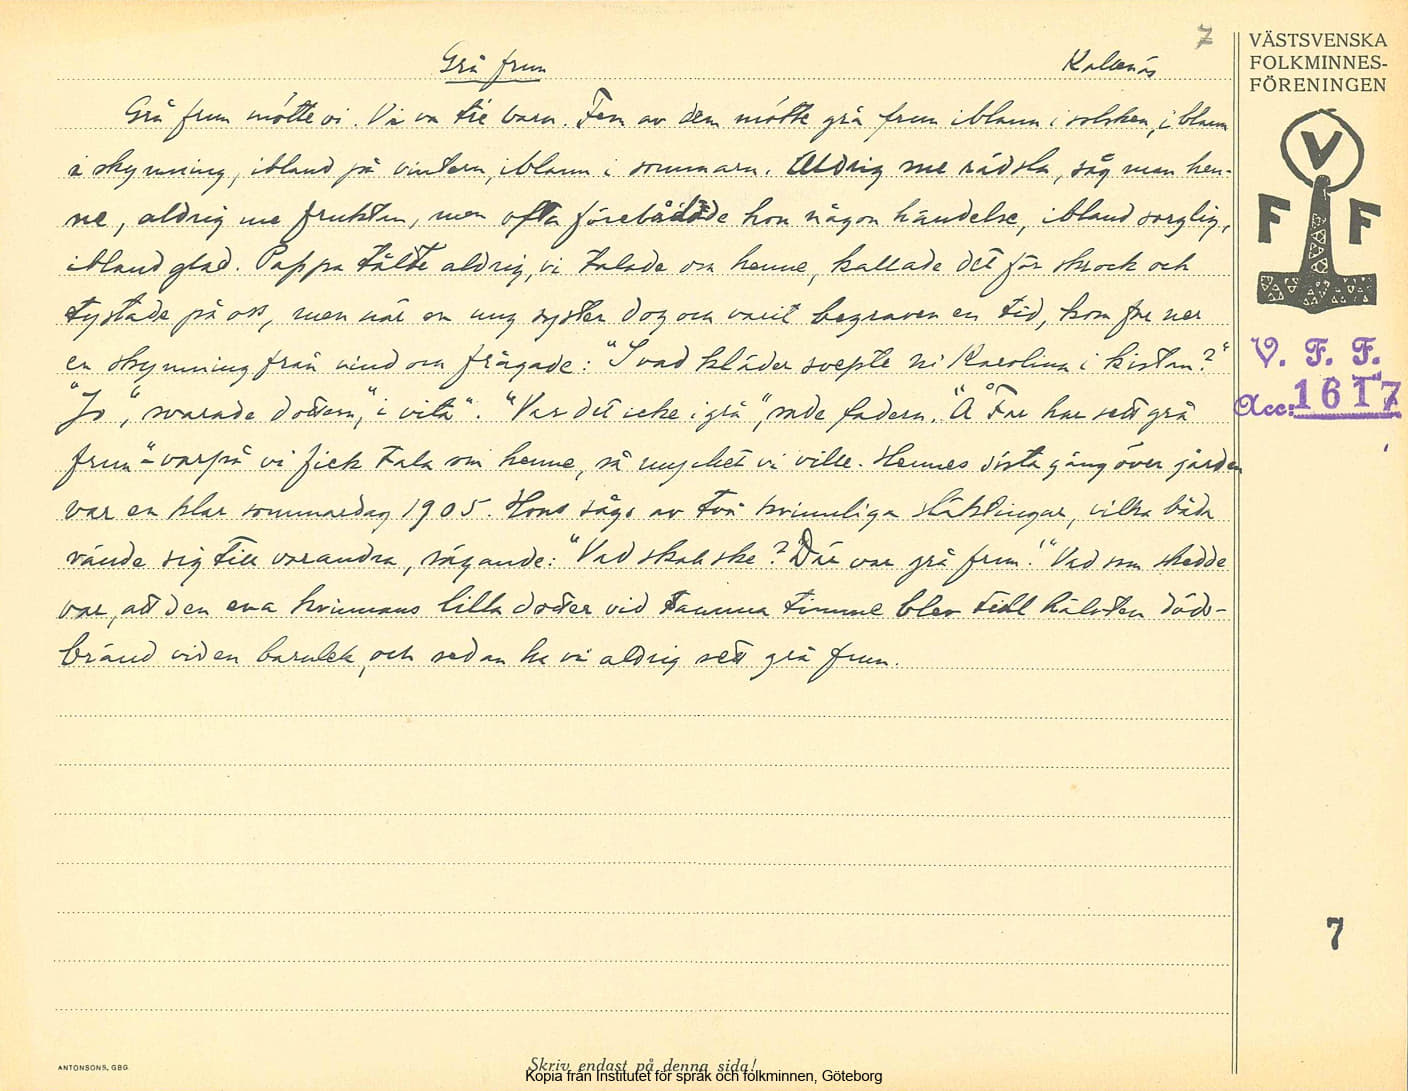 7
Grå frun
Kalvnäs
VÄSTSVENSKA
FOLKMINNES-
FÖRENINGEN
Grå frun mötte vi. Vi va tie barn. Fem av dem mötte grå frun iblann i solsken, iblann
i skymning, ibland på vintern, iblann i sommarn. Aldrig me rädsla, såg man hen-
ne, aldrig me fruktan, men ofta förebådade hon någon händelse, ibland sorglig,
ibland glad. Pappa tålte aldrig, vi talade om henne, kallade det för skrock och
tystade på oss, men när en ung syster dog och varit begraven en tid, kom far ner
en skymning från vind och frågade: "I vad kläder svepte ni Karolina i kistan?"
"Jo", svarade dottern, "i vita". "Var det icke i grå", sade fadern. "Å Far har sett grå
frun" - varpå vi fick tala om henne, så mycket vi ville. Hennes sista gång över gården
var en klar sommardag 1905. Hons sågs av två kvinnliga släktingar, vilka båda
vände sig till varandra, sägande: "Vad skall ske? Där var grå frun!" Vad som skedde
var, att den ena kvinnans lilla dotter vid samma timme blev till hälvten döds-
bränd vid en barnlek, och sedan ha vi aldrig sett grå frun.
V
F F
V. F. F.
Acc: 1617
7
ANTONSONS, GBG
Skriv endast på denna sida!
Kopia från Institutet för språk och folkminnen, Göteborg